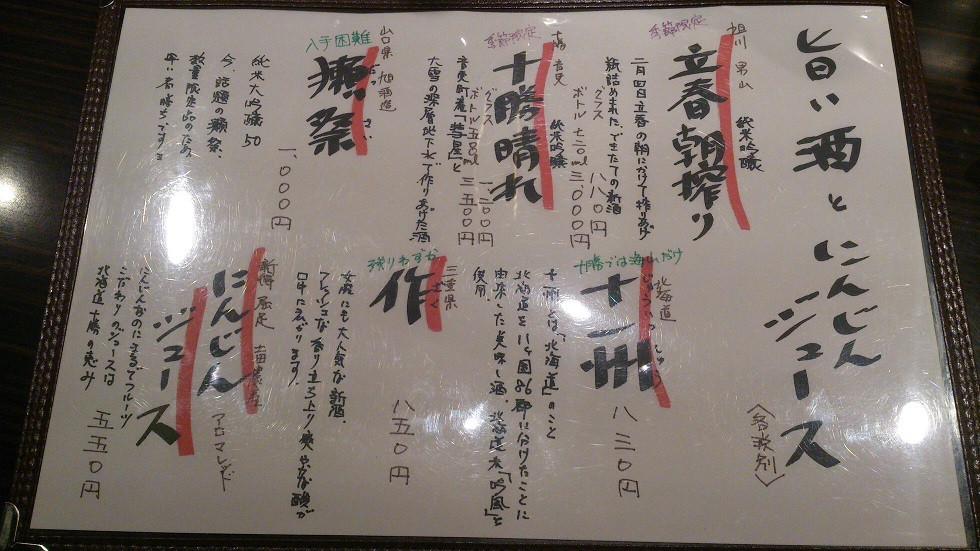 旨い酒とにんじんジュース
〈各税別〉
季節限定
旭川 男山
純米吟醸
立春朝搾り
二月四日立春の朝にかけて搾りあげ
紙詰めされた、できたての新酒
グラス 八八〇円
ボトル 七二〇ml 三、〇〇〇円
季節限定
十勝 音更
純米吟醸
十勝晴れ
グラス 一、二〇〇円
ボトル 五〇〇ml 三五〇〇円
音更町産「彗星」と
大雪の深層地下水で作りあげた酒
入手困難
山口県 旭酒造
獺祭
だっ さい
純米大吟醸50
今、話題の獺祭、
数量限定品のため
早い者勝ちです
一、〇〇〇円
十勝では海山だけ
北海道
じゅういっしゅう
十一州
八三〇円
十一州とは、「北海道」のこと
北海道を11ヶ国86郡に分けたことに
由来した美味し酒。北海道米「吟風」と
使用。
残りわずか
三重県
ざく
作
八五〇円
女性にも大人気な新酒。
フレッシュな香り立ち上り爽やかな酸が
口中に広がります。
新得 屈足
にんじん
ジュース
アロマレッド
にんじんなのにまるでフルーツ
こだわりのジュースは
北海道十勝の恵み
五五〇円